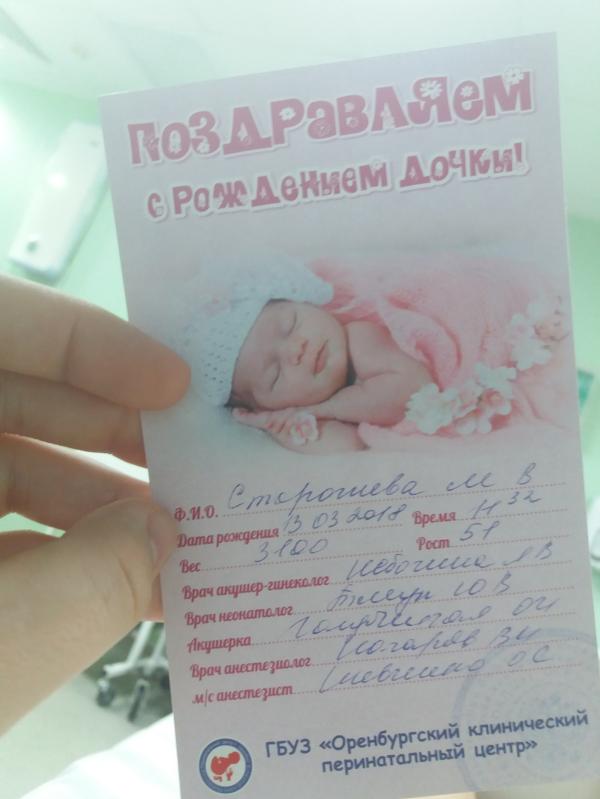 Поздравляем
с рождением дочки!
Ф.И.О. М В
Дата рождения 13 03 2018 Время 11 32
Вес 3100 Рост 51
Врач акушер-гинеколог
Врач неонатолог Ю В
Акушерка
Врач анестезиолог
м/с анестезист О С
ГБУЗ «Оренбургский клинический
перинатальный центр»